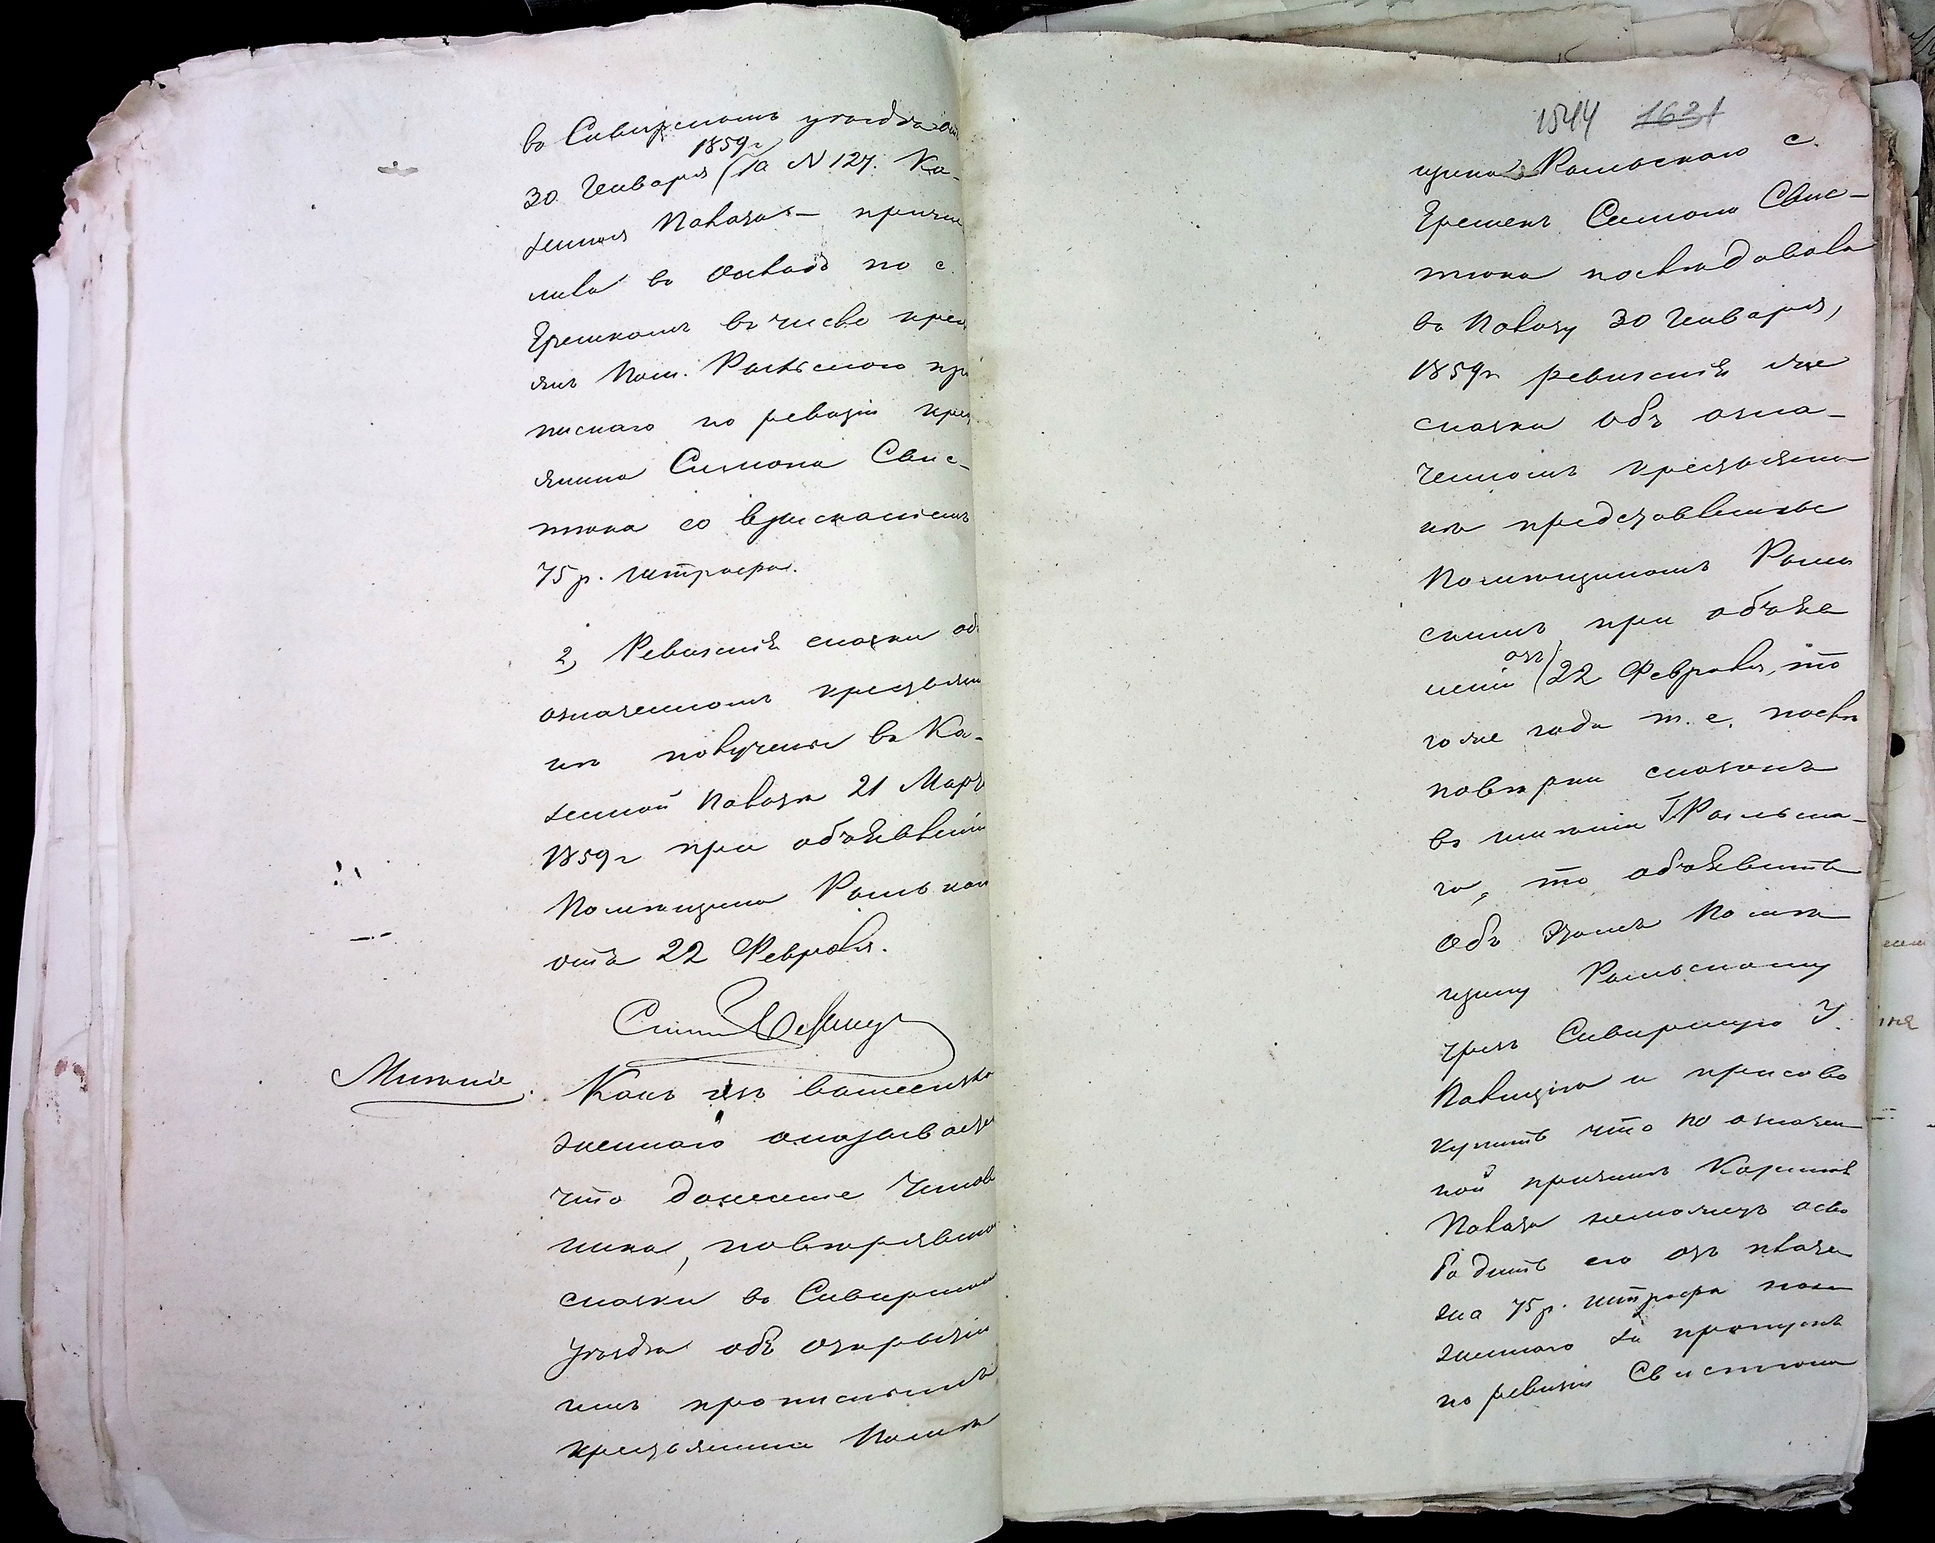 въ Сквирскомъ уѣздѣ отъ
30 Генваря 1859г. за N 127. Ка-
зенная Палата — причи
лила въ окладъ по с.
Грешкамъ въ число крес
янъ Пом. Ральскаго про
писнаго по ревизіи крес
янина Симона Свис-
тюна со взысканіемъ
75 р. штрафа.
2, Ревизскія сказки объ
означенномъ крестьяни
нѣ получены въ Ка-
зенной Палатѣ 21 Марта
1859г при объявленіи
Помѣщика Ральскаго
отъ 22 Февраля.
Мнѣніе.
Какъ изъ вышеизло
женнаго оказывается
что донесеніе Чинов
ника, повѣрявшаго
сказки въ Сквирскомъ
уѣздѣ объ открытіи
имъ прописнымъ
крестьянина Помѣ
1544 1631
щика Ральскаго с.
Грешекъ Симона Свис-
тюна послѣдовало
въ Палату 30 Генваря,
1859г ревизскія же
сказки объ озна-
ченномъ крестьяни
нѣ представлены
Помѣщикомъ Раль
скимъ при объявле
ніи отъ 22 Февраля, то
гоже года т. е. послѣ
повѣрки сказокъ
въ имѣніи Г. Ральска-
го, то объявить
объ этомъ Помѣ
щику Ральскому
чрезъ Сквирскую У.
Полицію и присово
купить что по означен
ной причинѣ Казенная
Палата неможетъ осво
бодить его отъ плате
жа 75 р. штрафа поло
женнаго за пропускъ
по ревизіи Свистюна